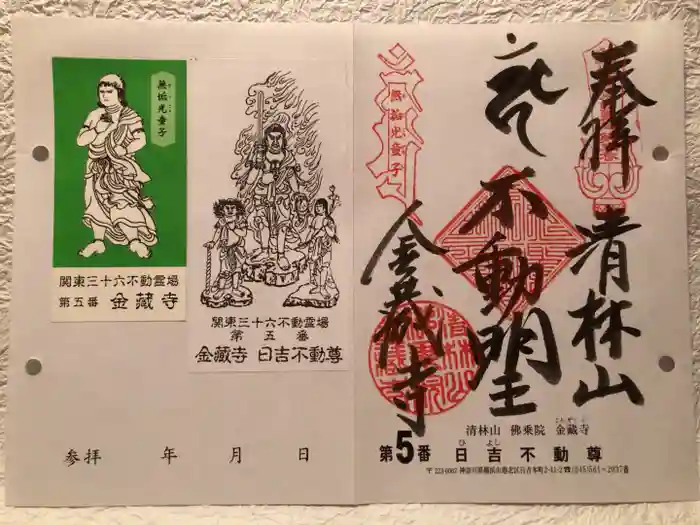 無垢光童子
むくこう
関東三十六不動霊場
第五番 金蔵寺
関東三十六不動霊場
第五番
金蔵寺 日吉不動尊
参拝 年 月 日
奉拝
清林山
不動明王
金蔵寺
無垢光童子
清林山 佛乗院 金蔵寺
こんぞうじ
第5番 日吉不動尊
ひよし
〒223-0062 神奈川県横浜市港北区日吉本町2-41-2☎(045)561-2037番